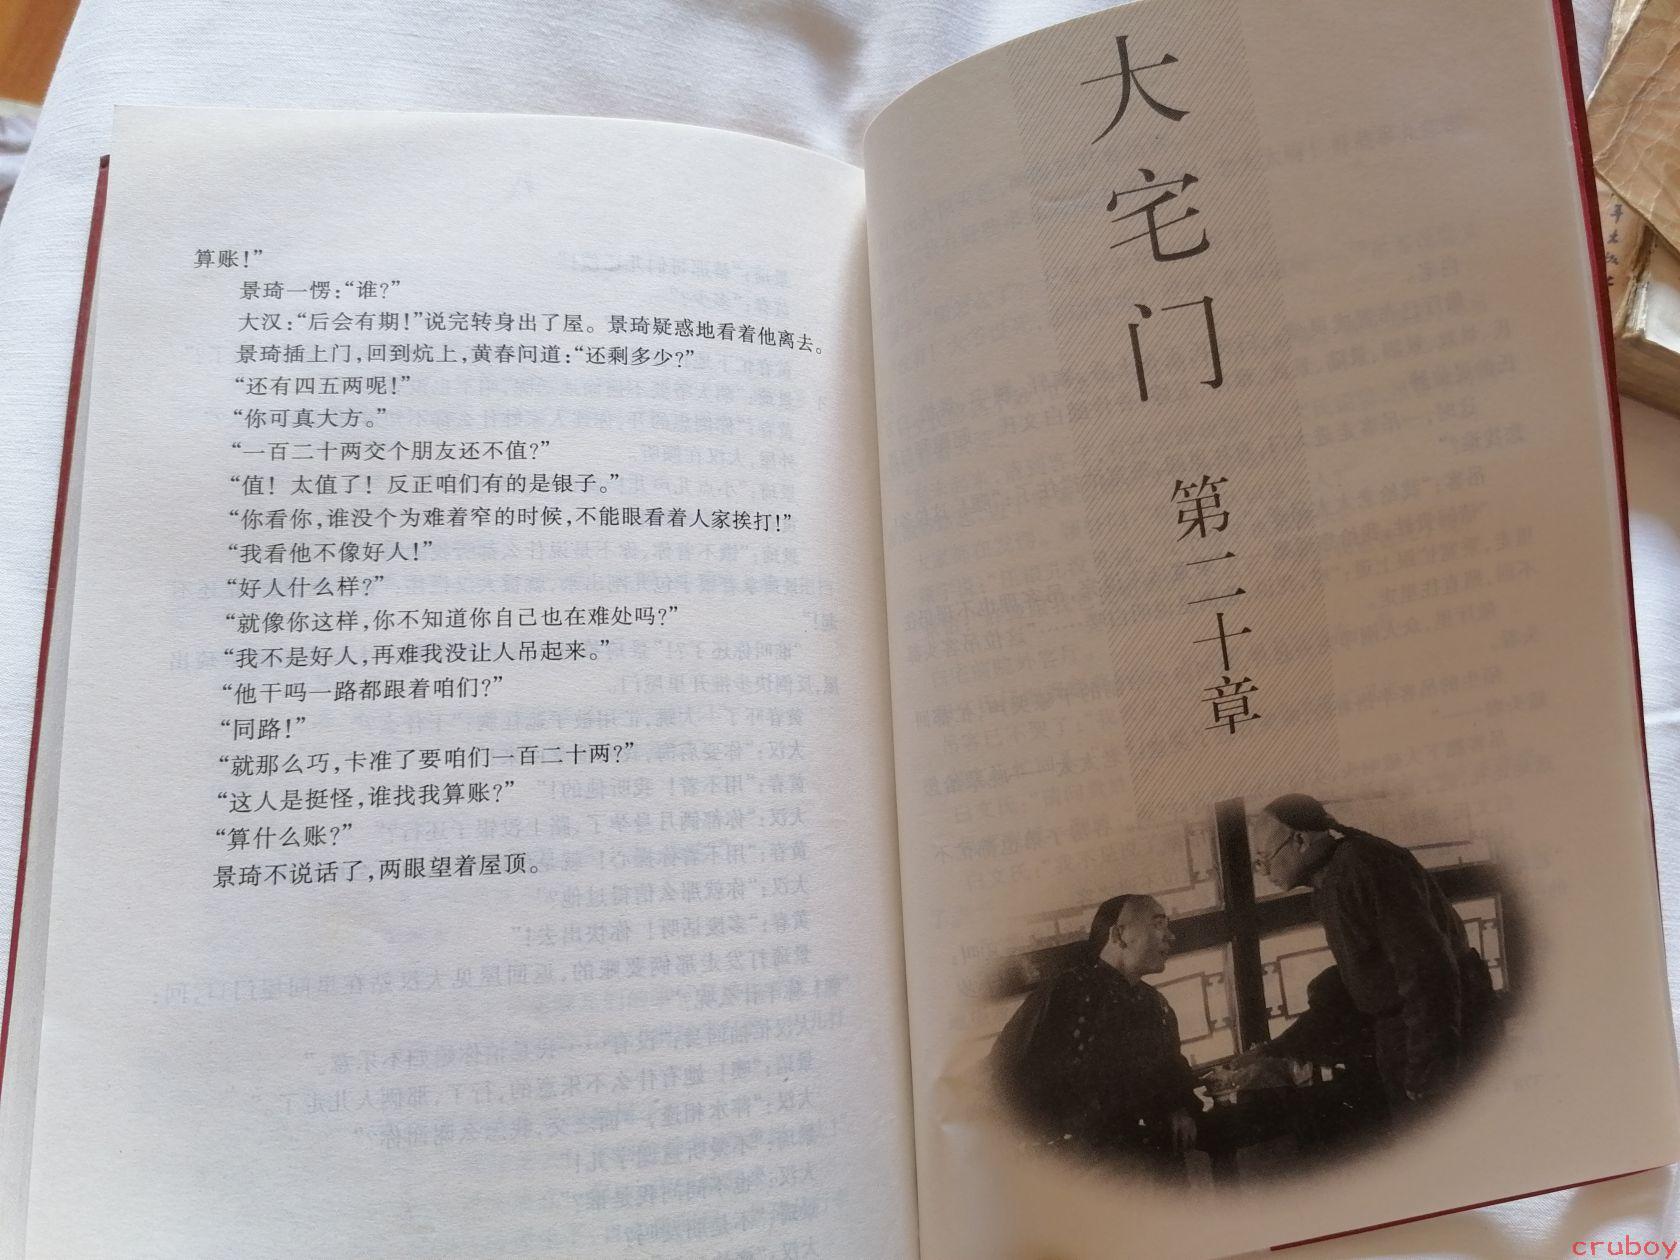 算账！”
景琦一愣：“谁？”
大汉：“后会有期！”说完转身出了屋。景琦疑惑地看着他离去。
景琦插上门，回到炕上，黄春问道：“还剩多少？”
“还有四五两呢！”
“你可真大方。”
“一百二十两交个朋友还不值？”
“值！太值了！反正咱们有的是银子。”
“你看你，谁没个为难着窄的时候，不能眼看着人家挨打！”
“我看他不像好人！”
“好人什么样？”
“就像你这样，你不知道你自己也在难处吗？”
“我不是好人，再难我没让人吊起来。”
“他干吗一路都跟着咱们？”
“同路！”
“就那么巧，卡准了要咱们一百二十两？”
“这人是挺怪，谁找我算账？”
“算什么账？”
景琦不说话了，两眼望着屋顶。
大宅门
第二十章
cruboy